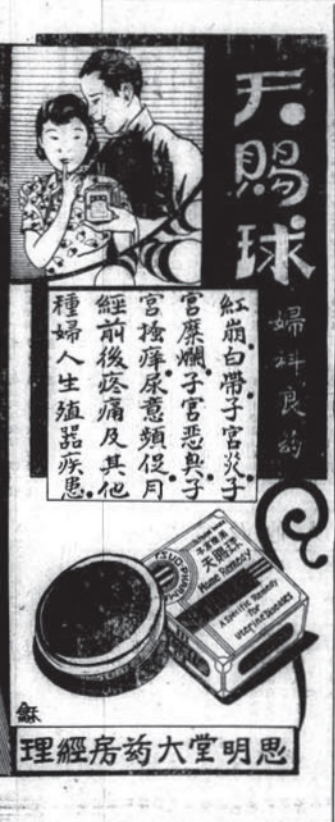 天賜球
婦科良药
紅崩白帶子宮炎子
宮糜爛子宮惡臭子
宮搔痒尿意頻促月
經前後疼痛及其他
種婦人生殖器疾患
天賜球
Home Remedy
A Specific Remedy
for
Uterine Diseases
思明堂大药房經理